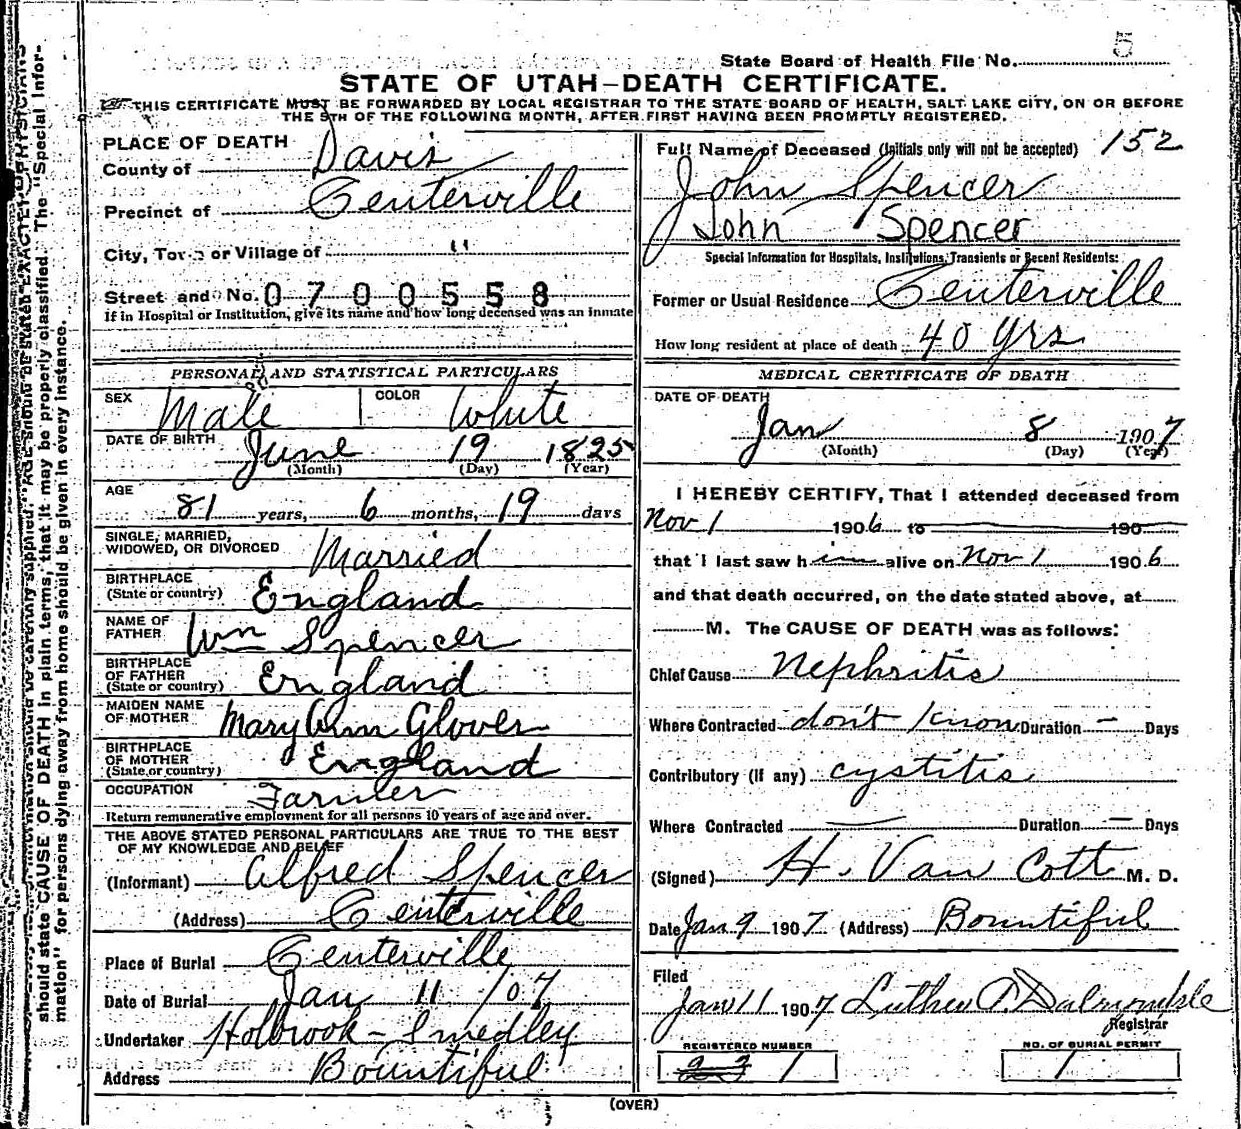 5
State Board of Health File No.
STATE OF UTAH–DEATH CERTIFICATE.
THIS CERTIFICATE MUST BE FORWARDED BY LOCAL REGISTRAR TO THE STATE BOARD OF HEALTH, SALT LAKE CITY, ON OR BEFORE
THE 5TH OF THE FOLLOWING MONTH, AFTER FIRST HAVING BEEN PROMPTLY REGISTERED.
PLACE OF DEATH
County of Davis
Precinct of Centerville
City, Town or Village of "
Street and No. 0700558
If in Hospital or Institution, give its name and how long deceased was an inmate
PERSONAL AND STATISTICAL PARTICULARS
SEX Male COLOR White
DATE OF BIRTH June 19 1825
(Month) (Day) (Year)
AGE
81 years, 6 months, 19 days
SINGLE, MARRIED,
WIDOWED, OR DIVORCED Married
BIRTHPLACE
(State or country) England
NAME OF
FATHER Wm Spencer
BIRTHPLACE
OF FATHER
(State or country) England
MAIDEN NAME
OF MOTHER Mary Ann Glover
BIRTHPLACE
OF MOTHER
(State or country) England
OCCUPATION Farmer
Return remunerative employment for all persons 10 years of age and over.
THE ABOVE STATED PERSONAL PARTICULARS ARE TRUE TO THE BEST
OF MY KNOWLEDGE AND BELIEF
(Informant) Alfred Spencer
(Address) Centerville
Place of Burial Centerville
Date of Burial Jan 11 /07
Undertaker Holbrook - Smedley
Address Bountiful
Full Name of Deceased (Initials only will not be accepted) 152
John Spencer
John Spencer
Special Information for Hospitals, Institutions, Transients or Recent Residents:
Former or Usual Residence Centerville
How long resident at place of death 40 yrs
MEDICAL CERTIFICATE OF DEATH
DATE OF DEATH
Jan 8 1907
(Month) (Day) (Year)
I HEREBY CERTIFY, That I attended deceased from
Nov 1 1906 to 190
that I last saw him alive on Nov 1 1906
and that death occurred, on the date stated above, at
M. The CAUSE OF DEATH was as follows:
Chief Cause Nephritis
Where Contracted don't know Duration – Days
Contributory (If any) cystitis
Where Contracted — Duration – Days
(Signed) H. Van Cott M. D.
Date Jan 9 1907 (Address) Bountiful
Filed
Jan 11 1907 Luther
Registrar
REGISTERED NUMBER NO. OF BURIAL PERMIT
1 1
(OVER)
should state CAUSE OF DEATH in plain terms, that it may be properly classified. The "Special Infor-
mation" for persons dying away from home should be given in every instance.